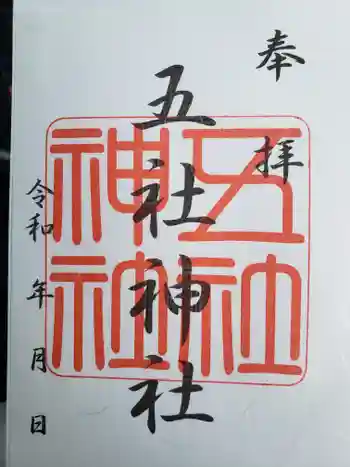 奉拝
五社神社
五社神社
令和 年 月 日